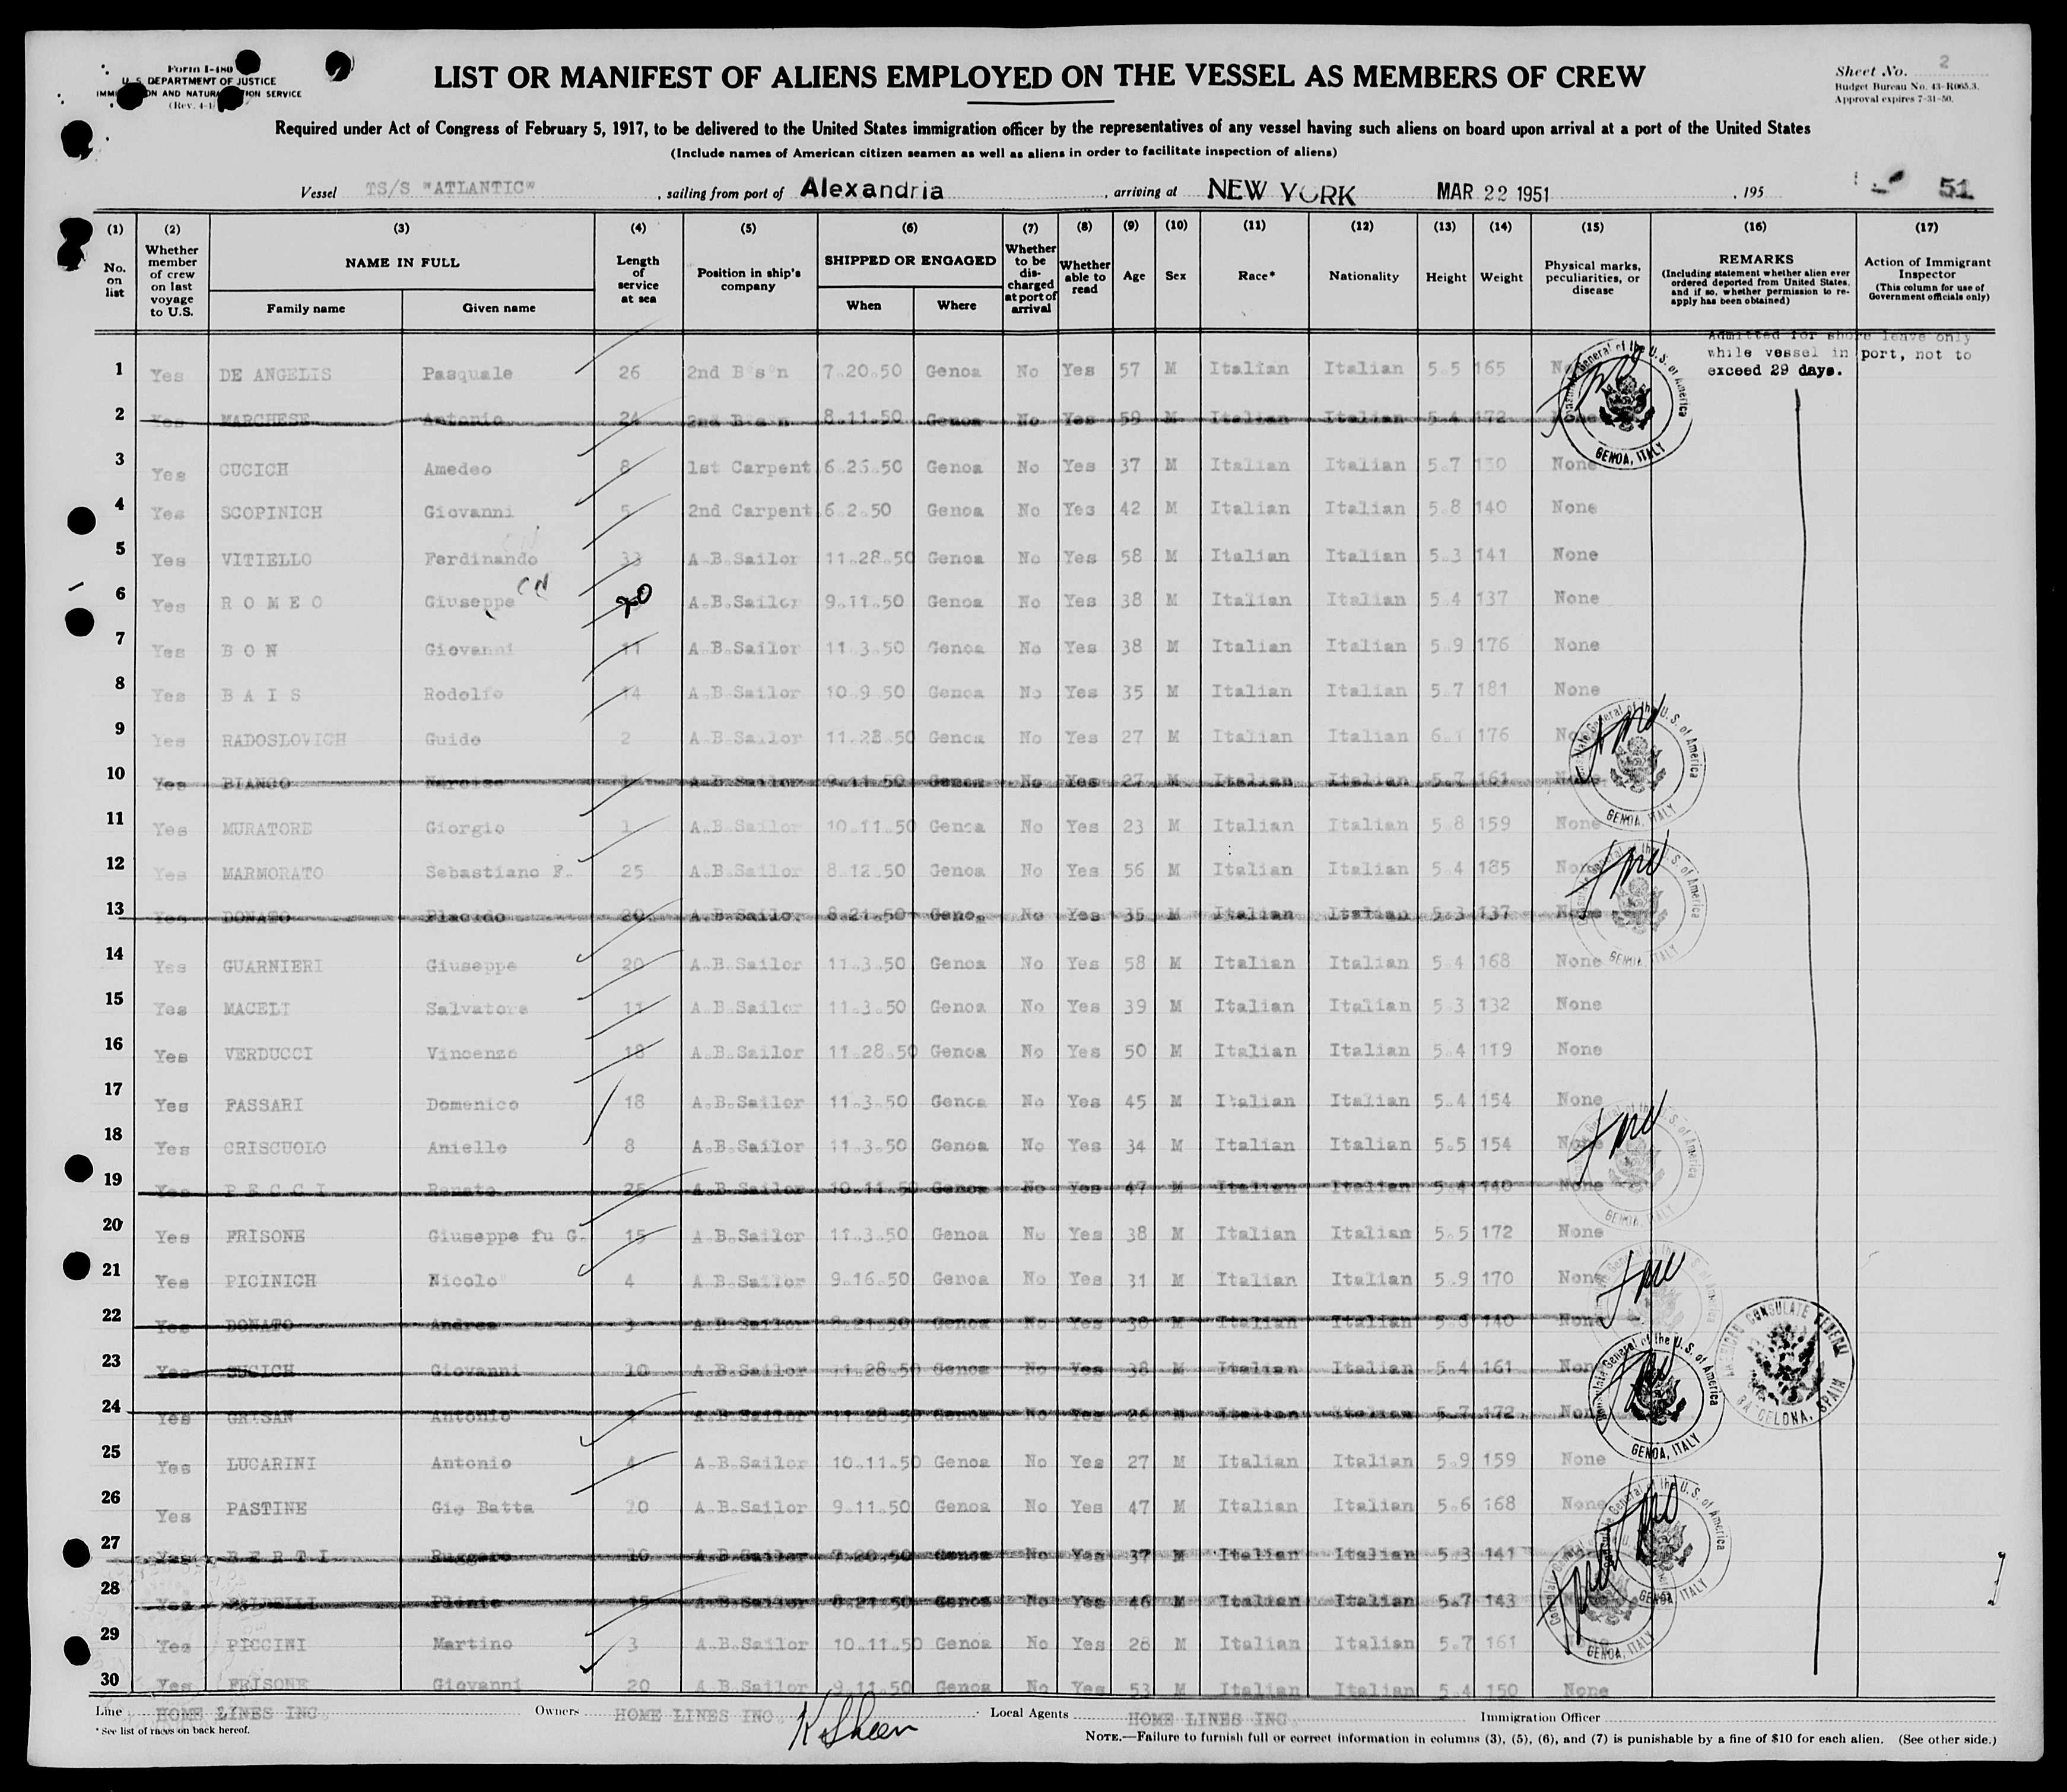 Form I-480
U. S. DEPARTMENT OF JUSTICE
IMMIGRATION AND NATURALIZATION SERVICE
(Rev. 4-1
LIST OR MANIFEST OF ALIENS EMPLOYED ON THE VESSEL AS MEMBERS OF CREW
Sheet No. 2
Budget Bureau No. 43-R065.3.
Approval expires 7-31-50.
Required under Act of Congress of February 5, 1917, to be delivered to the United States immigration officer by the representatives of any vessel having such aliens on board upon arrival at a port of the United States
(Include names of American citizen seamen as well as aliens in order to facilitate inspection of aliens)
Vessel TS/S "ATLANTIC", sailing from port of Alexandria, arriving at NEW YORK MAR 22 1951, 195 51
(1) (2) (3) (4) (5) (6) (7) (8) (9) (10) (11) (12) (13) (14) (15) (16) (17)
No. on list
Whether member of crew on last voyage to U.S.
NAME IN FULL
Family name
Given name
Length of service at sea
Position in ship's company
SHIPPED OR ENGAGED
When
Where
Whether to be discharged at port of arrival
Whether able to read
Age
Sex
Race*
Nationality
Height
Weight
Physical marks, peculiarities, or disease
REMARKS
(Including statement whether alien ever ordered deported from United States, and if so, whether permission to reapply has been obtained)
Action of Immigrant Inspector
(This column for use of Government officials only)
Admitted for shore leave only
while vessel in port, not to
exceed 29 days.
1 Yes DE ANGELIS Pasquale 26 2nd B's'n 7.20.50 Genoa No Yes 57 M Italian Italian 5.5 165 None
2 Yes MARCHESE Antonio 24 2nd B's'n 8.11.50 Genoa No Yes 59 M Italian Italian 5.4 172 None
3 Yes CUCICH Amedeo 8 1st Carpent 6.26.50 Genoa No Yes 37 M Italian Italian 5.7 150 None
4 Yes SCOPINICH Giovanni 5 2nd Carpent 6.2.50 Genoa No Yes 42 M Italian Italian 5.8 140 None
5 Yes VITIELLO Ferdinando 33 A.B.Sailor 11.28.50 Genoa No Yes 58 M Italian Italian 5.3 141 None
6 Yes R O M E O Giuseppe 20 A.B.Sailor 9.11.50 Genoa No Yes 38 M Italian Italian 5.4 137 None
7 Yes B O N Giovanni 11 A.B.Sailor 11.3.50 Genoa No Yes 38 M Italian Italian 5.9 176 None
8 Yes B A I S Rodolfo 14 A.B.Sailor 10.9.50 Genoa No Yes 35 M Italian Italian 5.7 181 None
9 Yes RADOSLOVICH Guido 2 A.B.Sailor 11.28.50 Genoa No Yes 27 M Italian Italian 6.1 176 None
10 Yes BIANCO Narciso A.B.Sailor 9.11.50 Genoa No Yes 27 M Italian Italian 5.7 161 None
11 Yes MURATORE Giorgio 1 A.B.Sailor 10.11.50 Genoa No Yes 23 M Italian Italian 5.8 159 None
12 Yes MARMORATO Sebastiano F. 25 A.B.Sailor 8.12.50 Genoa No Yes 56 M Italian Italian 5.4 185 None
13 Yes DONATO Placido 20 A.B.Sailor 8.21.50 Genoa No Yes 35 M Italian Italian 5.3 137 None
14 Yes GUARNIERI Giuseppe 20 A.B.Sailor 11.3.50 Genoa No Yes 58 M Italian Italian 5.4 168 None
15 Yes MACELI Salvatore 11 A.B.Sailor 11.3.50 Genoa No Yes 39 M Italian Italian 5.3 132 None
16 Yes VERDUCCI Vincenzo 18 A.B.Sailor 11.28.50 Genoa No Yes 50 M Italian Italian 5.4 119 None
17 Yes PASSARI Domenico 18 A.B.Sailor 11.3.50 Genoa No Yes 45 M Italian Italian 5.4 154 None
18 Yes CRISCUOLO Aniello 8 A.B.Sailor 11.3.50 Genoa No Yes 34 M Italian Italian 5.5 154 None
19 Yes P E C C I Renato 25 A.B.Sailor 10.11.50 Genoa No Yes 47 M Italian Italian 5.4 148 None
20 Yes FRISONE Giuseppe fu G. 15 A.B.Sailor 11.3.50 Genoa No Yes 38 M Italian Italian 5.5 172 None
21 Yes PICINICH Nicolo' 4 A.B.Sailor 9.16.50 Genoa No Yes 31 M Italian Italian 5.9 170 None
22 Yes DONATO Andrea 3 A.B.Sailor 8.21.50 Genoa No Yes 38 M Italian Italian 140 None
23 Yes SUCICH Giovanni 10 A.B.Sailor 11.28.50 Genoa No Yes 38 M Italian Italian 5.4 161 None
24 Yes GRISAN Antonio A.B.Sailor 11.28.50 Genoa No Yes 26 M Italian Italian 5.7 172 None
25 Yes LUCARINI Antonio 4 A.B.Sailor 10.11.50 Genoa No Yes 27 M Italian Italian 5.9 159 None
26 Yes PASTINE Gio Batta 20 A.B.Sailor 9.11.50 Genoa No Yes 47 M Italian Italian 5.6 168 None
27 Yes B E R T I Ruggero 16 A.B.Sailor 7.20.50 Genoa No Yes 37 M Italian Italian 5.3 141
28 Yes Plinio 15 A.B.Sailor 8.21.50 Genoa No Yes 46 M Italian Italian 5.7 143
29 Yes PICCINI Martino 3 A.B.Sailor 10.11.50 Genoa No Yes 28 M Italian Italian 5.7 161
30 Yes FRISONE Giovanni 20 A.B.Sailor 9.11.50 Genoa No Yes 53 M Italian Italian 5.4 150 None
Consulate General of the U.S. of America
GENOA, ITALY
Consulate General of the U.S. of America
GENOA, ITALY
Consulate General of the U.S. of America
GENOA, ITALY
Consulate General of the U.S. of America
GENOA, ITALY
Consulate General of the U.S. of America
AMERICAN CONSULATE GENERAL
BARCELONA, SPAIN
Consulate General of the U.S. of America
GENOA, ITALY
Consulate General of the U.S. of America
GENOA, ITALY
GENOA, ITALY
Line HOME LINES INC. Owners HOME LINES INC. Local Agents HOME LINES INC. Immigration Officer
* See list of races on back hereof.
NOTE.—Failure to furnish full or correct information in columns (3), (5), (6), and (7) is punishable by a fine of $10 for each alien. (See other side.)